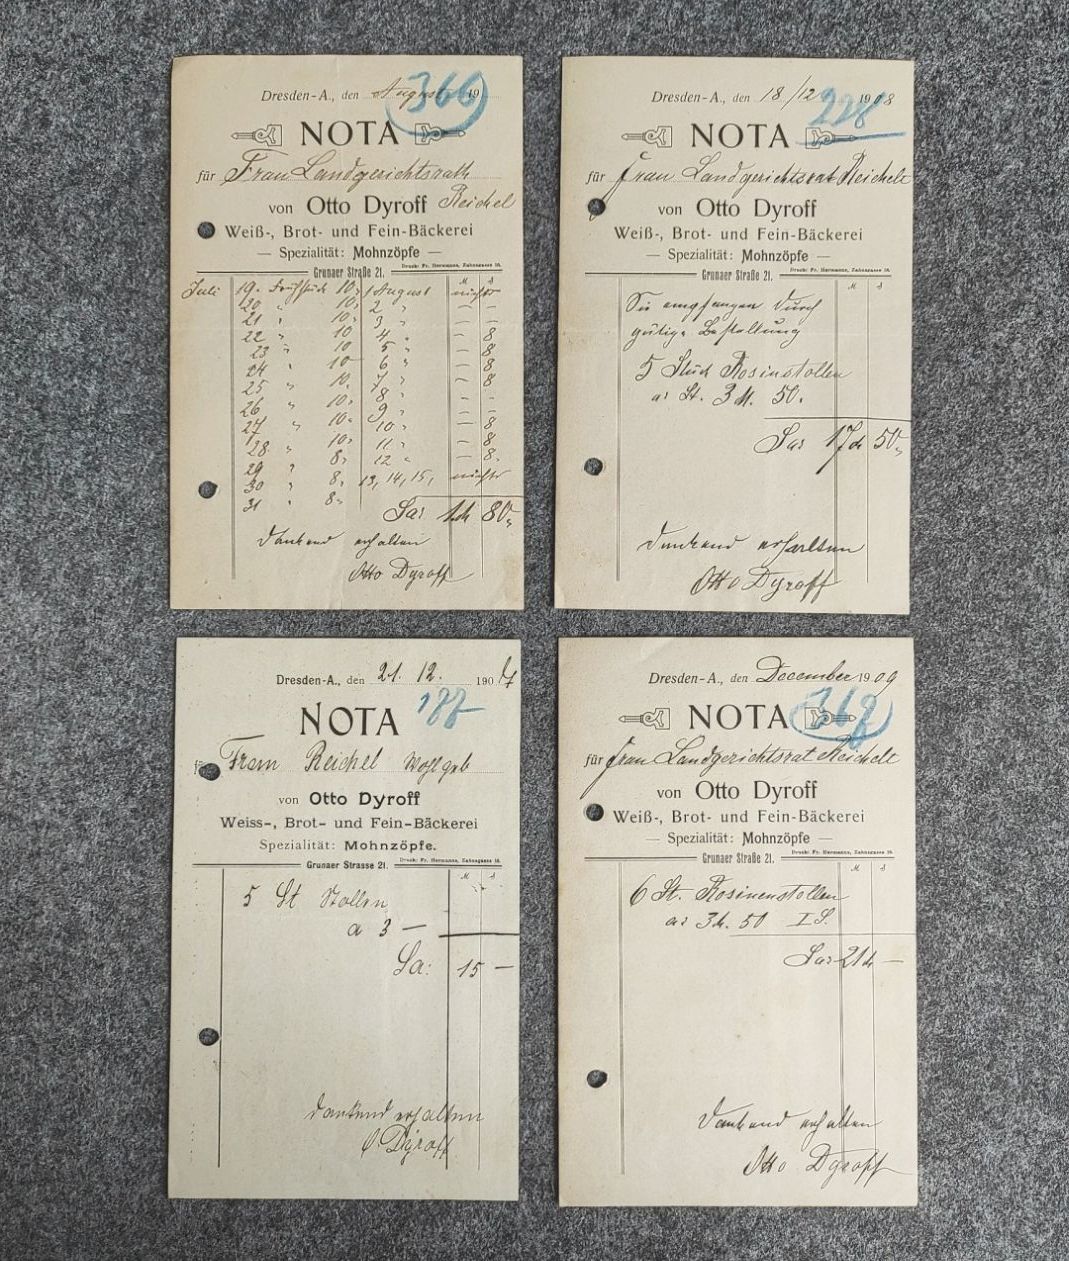 Dresden-A., den August 19
366
NOTA
für Frau Landgerichtsrath
von Otto Dyroff Reichel
Weiß-, Brot- und Fein-Bäckerei
— Spezialität: Mohnzöpfe —
Grunaer Straße 21.
Druck: Fr. Hermanns, Zahnsgasse 16.
Juli 19. Frühstück 10, 1 August nichts
20 " 10, 2 " — —
21 " 10, 3 " — —
22 " 10 4 " — 8
23 " 10 5 " — 8
24 " 10 6 " — 8
25 " 10, 7 " — 8
26 " 10, 8 " — -
27 " 10, 9 " — 8
28 " 10, 10 " — 8
29 " 8, 11 " — 8
30 " 8, 12 " — 8
31 " 8, 13, 14, 15, nichts
Sa: 1 M 80
dankend erhalten
Otto Dyroff
Dresden-A., den 18/12 1908
228
NOTA
für Frau Landgerichtsrat Reichelt
von Otto Dyroff
Weiß-, Brot- und Fein-Bäckerei
— Spezialität: Mohnzöpfe —
Grunaer Straße 21.
Druck: Fr. Hermanns, Zahnsgasse 16.
Sie empfangen durch
gütige Bestellung
5 Stück Rosinstollen
a: St. 3 M. 50.
Sa: 17 M 50
dankend erhalten
Otto Dyroff
Dresden-A., den 21. 12. 1907
188
NOTA
für Frau Reichel Wohlgeb
von Otto Dyroff
Weiss-, Brot- und Fein-Bäckerei
Spezialität: Mohnzöpfe.
Grunaer Strasse 21.
Druck: Fr. Hermanns, Zahnsgasse 16.
5 St Stollen
a 3 —
Sa: 15 —
dankend erhalten
O. Dyroff
Dresden-A., den December 1909
NOTA
für Frau Landgerichtsrat Reichelt
von Otto Dyroff
Weiß-, Brot- und Fein-Bäckerei
— Spezialität: Mohnzöpfe —
Grunaer Straße 21.
Druck: Fr. Hermanns, Zahnsgasse 16.
6 St. Rosinenstollen
a: 3 M. 50 I S.
Sa: 21 M —
dankend erhalten
Otto Dyroff